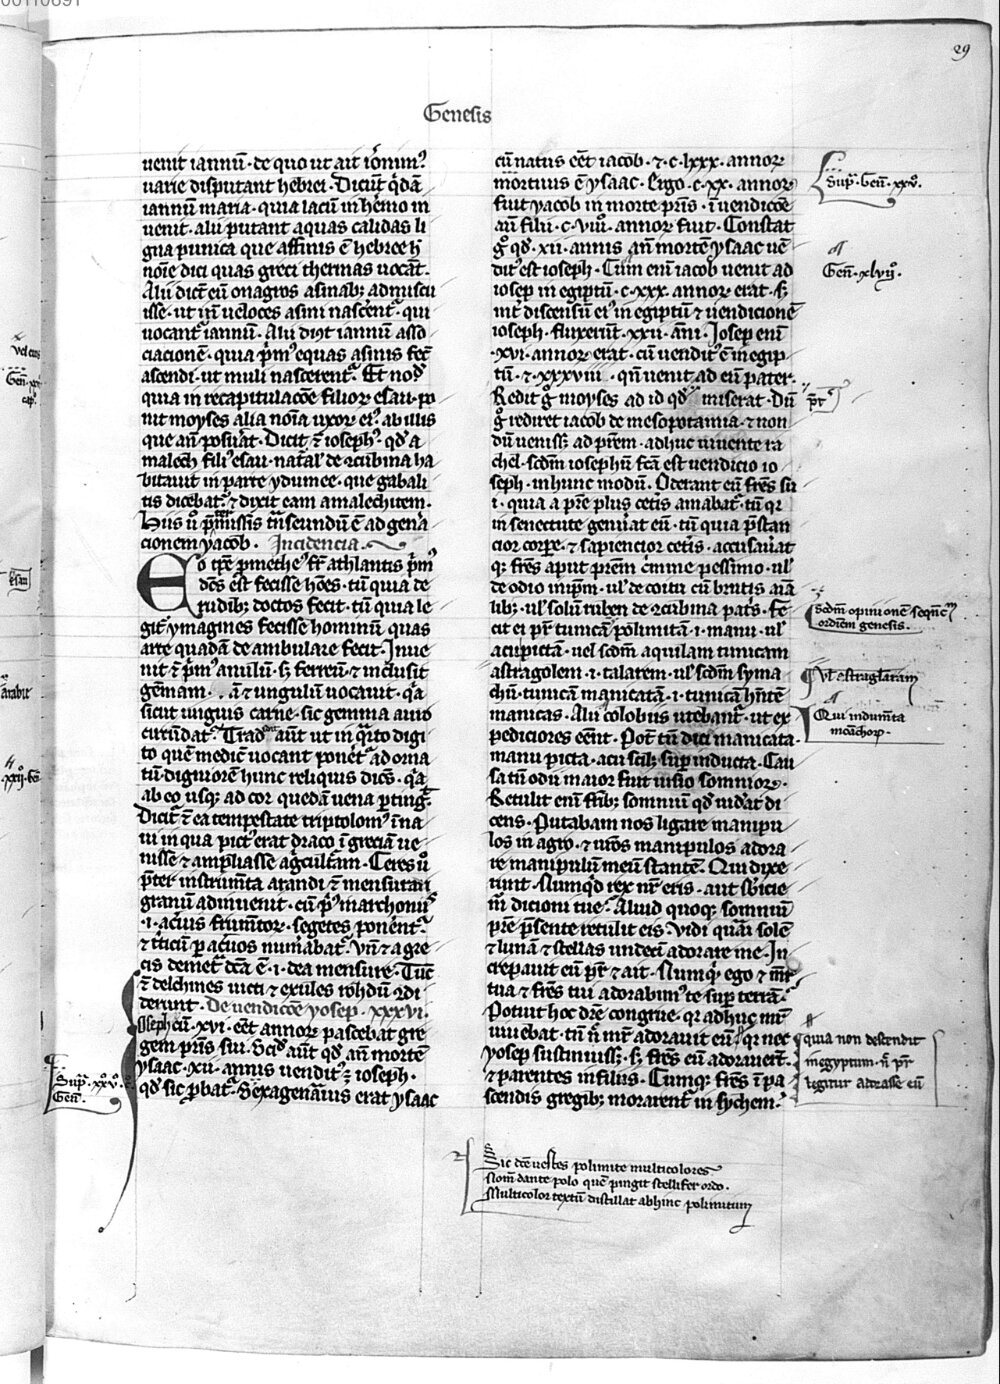 29
Genesis
uenit iannū · de quo ut ait ieronim᷒
uarie disputant hebrei · Dicūt qͥdā
iannū maria · quia lacū in heremo in
uenit · alii putant aquas calidas li
gua punica que affinis ē hebree h
noīe dici quas greci thermas uocāt ·
Alii dict̄ eū onagros asinab; admiscu
isse · ut inͥ ueloces asini nascer̄et᷑ · qui
uocant᷑ iannū · Alii diūt iannū asso
ciacionē · quia pͥm᷒ equas asinis fec̄
ascendi · ut muli nascerent᷑ · Et nod᷒
quia in recapitulacōe filioꝝ esau · po
nit moyses alia noīa uxoꝝ ei᷒ · ab illis
que an̄ posuāt · Dicit ⁊ ioseph᷒ · qd᷒ a
malech fili᷒ esau · natal᷒ de ꝯcubina ha
bitauit in parte ydumee · que gabali
tis dicebat᷑ · ⁊ dixit eam amalechitem ·
Hiis ū p̄missis tͣnseundū ē ad genͣa
cionem yacob · Incidencia ·
EO tꝑe ꝓmethe᷒ fr̄ athlantis pͥm᷒
dcūs est fecisse hoēs · tū quia de
rudib; doctos fecit · tū quia le
git᷑ ymagines fecisse hominū quas
arte quadā de ambulare fecit · Inue
nit ⁊ pͥm᷒ anulū · ſ; ferreū ⁊ inclusit
gēmam · ⁊ ungulū uocauit · qͣa
sicut unguis carne · sic gemma auro
circūdat᷑ · Tradͥ aūt ut in qͣrto digi
to quē medicī uocant ponēt᷑ ad orna
tū · digniorē hunc reliquis dicēs · qͣa
ab eo usq; ad cor quedā uena ꝑting᷑ ·
Dicit᷑ ⁊ ea tempestate triptolom᷒ ī na
ui in qua pict᷒ erat draco ī greciā ue
nisse ⁊ ampliasse agͥcult̄am · Ceres ū
p̄ter instrum̄ta arandi ⁊ mensuram
granū adinuenit · cū p᷒ marchoniī
· i · aceruis frum̄toꝝ · segetes ponēnt᷑ ·
⁊ tͥticū ꝑ aceruos num̄abat᷑ · Vn̄ ⁊ a gre
cis demet᷑ dc̄a ē · i · dea mensure · Tūc
⁊ delchines uicti ⁊ exules rohdū ꝯdi
derunt · De uendicōe yosep · xxxvi
IOseph cū · xvi · eēt annoꝝ pascebat gre
gem pr̄is sui · Sciͤd aūt qd᷒ an̄ mortē
ysaac · xii · annis uendit᷒ ē ioseph ·
qd᷒ sic ꝓbat᷑ · Sexagenāius erat ysaac
cū natus eēt iacob · ⁊ · c · lxxx · annoꝝ
mortuus ē ysaac · Ergo · c · xx · annoꝝ
fuit yacob in morte pr̄is · ī uendicōe
aū filii · c · viii · annoꝝ fuit · Constat
gͦ qd᷒ · xii · annis an̄ mortē ysaac uē
dit᷒ est ioseph · Cum eni᷒ iacob uenit ad
iosep in egiptū · c · xxx · annoꝝ erat · ſ;
int̄ discensū ei᷒ in egiptū ⁊ uendicionē
ioseph · fluxerūt · xxii · āni · Josep enī
· xvi · annoꝝ erat · cū uendit᷒ ē in egip
tū · ⁊ xxxviii · qn̄ uenit ad eū pater ·
Redit gͦ moyses ad id qd᷒ miserat · Dū
gͦ rediret iacob de mesopotamia · ⁊ non
dū uenisset ad pr̄em · adhuc uiuente ra
chel · scd̄m iosephū fc̄a est uendicio io
seph · in hunc modū · Oderant eū fr̄es su
i · quia a pr̄e plus cet̄is amabat᷑ · tū qͣ
in senectute genuͤat eū · tū quia p̄stan
cior corꝑe · ⁊ sapiencior cet̄is · accusauͤat
q; fr̄es aput pr̄em cͥmine pessimo · ul᷒
de odio in ip̄m · ul᷒ de coitu cū brutis aīa
lib; · ul᷒ solū ruben de ꝯcubina pat̄s · Fe
cit ei pr̄ tunicā polimitā · i · manu · ul᷒
acu pictā · uel scd̄m aquilam tunicam
astragolem · i · talarem · ul᷒ scd̄m syma
chū · tunicā manicatā · i · tunicā hn̄tē
manicas · Alii colobiis utebant᷑ · ut ex
pediciores eēnt · Pot̄ tn̄ dici manicata ·
manu picta · acu scil; suꝑ inducta · Cau
sa tn̄ odii maior fuit uisio somnioꝝ ·
Retulit enī fr̄ib; somniū qd᷒ uidͤat di
cens · Putabam nos ligare manipu
los in agro · ⁊ ur̄os manipulos adora
re manipulū meū stantē · Qui dixe
runt · Nūqͥd rex nr̄ eris · aut sb̄icie
m᷑ dicioni tue᷑ · Aliud quoq; somniū
pr̄e p̄sente retulit eis · Vidi quasi solē
⁊ lunā ⁊ stellas undecī adorare me · In
crepauit eū pr̄ ⁊ ait · Nūqͥd ego ⁊ mr̄
tua ⁊ fr̄es tui adorabim᷒ te suꝑ terrā᷑
Potuit hoc dr̄e congrue · qͣ adhuc mr̄
uiuebat · tn̄ nͦ mr̄ adorauit eū · qͣ nec
yosep sustinuiss; · ſ; fr̄es eū adorauer̄t ·
⁊ parentes in filiis · Cumq; fr̄es ī pa
scendis gregib; morarent᷑ in sychem ·
Supͣ · Gen̄ · xxvͦ ·
Gen̄ · xlvii ·
pr̄
Scd̄m opinionē seqn̄cē
ordiem genesis ·
Vl᷒ astraglaram
Qui indum̄ta
monchoꝝ ·
quia non descendit
in egyptum · nͦ pr̄
legitur adorasse eū
Supͣ · xxvͦ ·
Gen̄ ·
Sic dc̄e uestes polimite multicolores
Nom̄ dante polo quē pingit stellifer ordo ·
Multicolor textū distillat abhinc polimitum